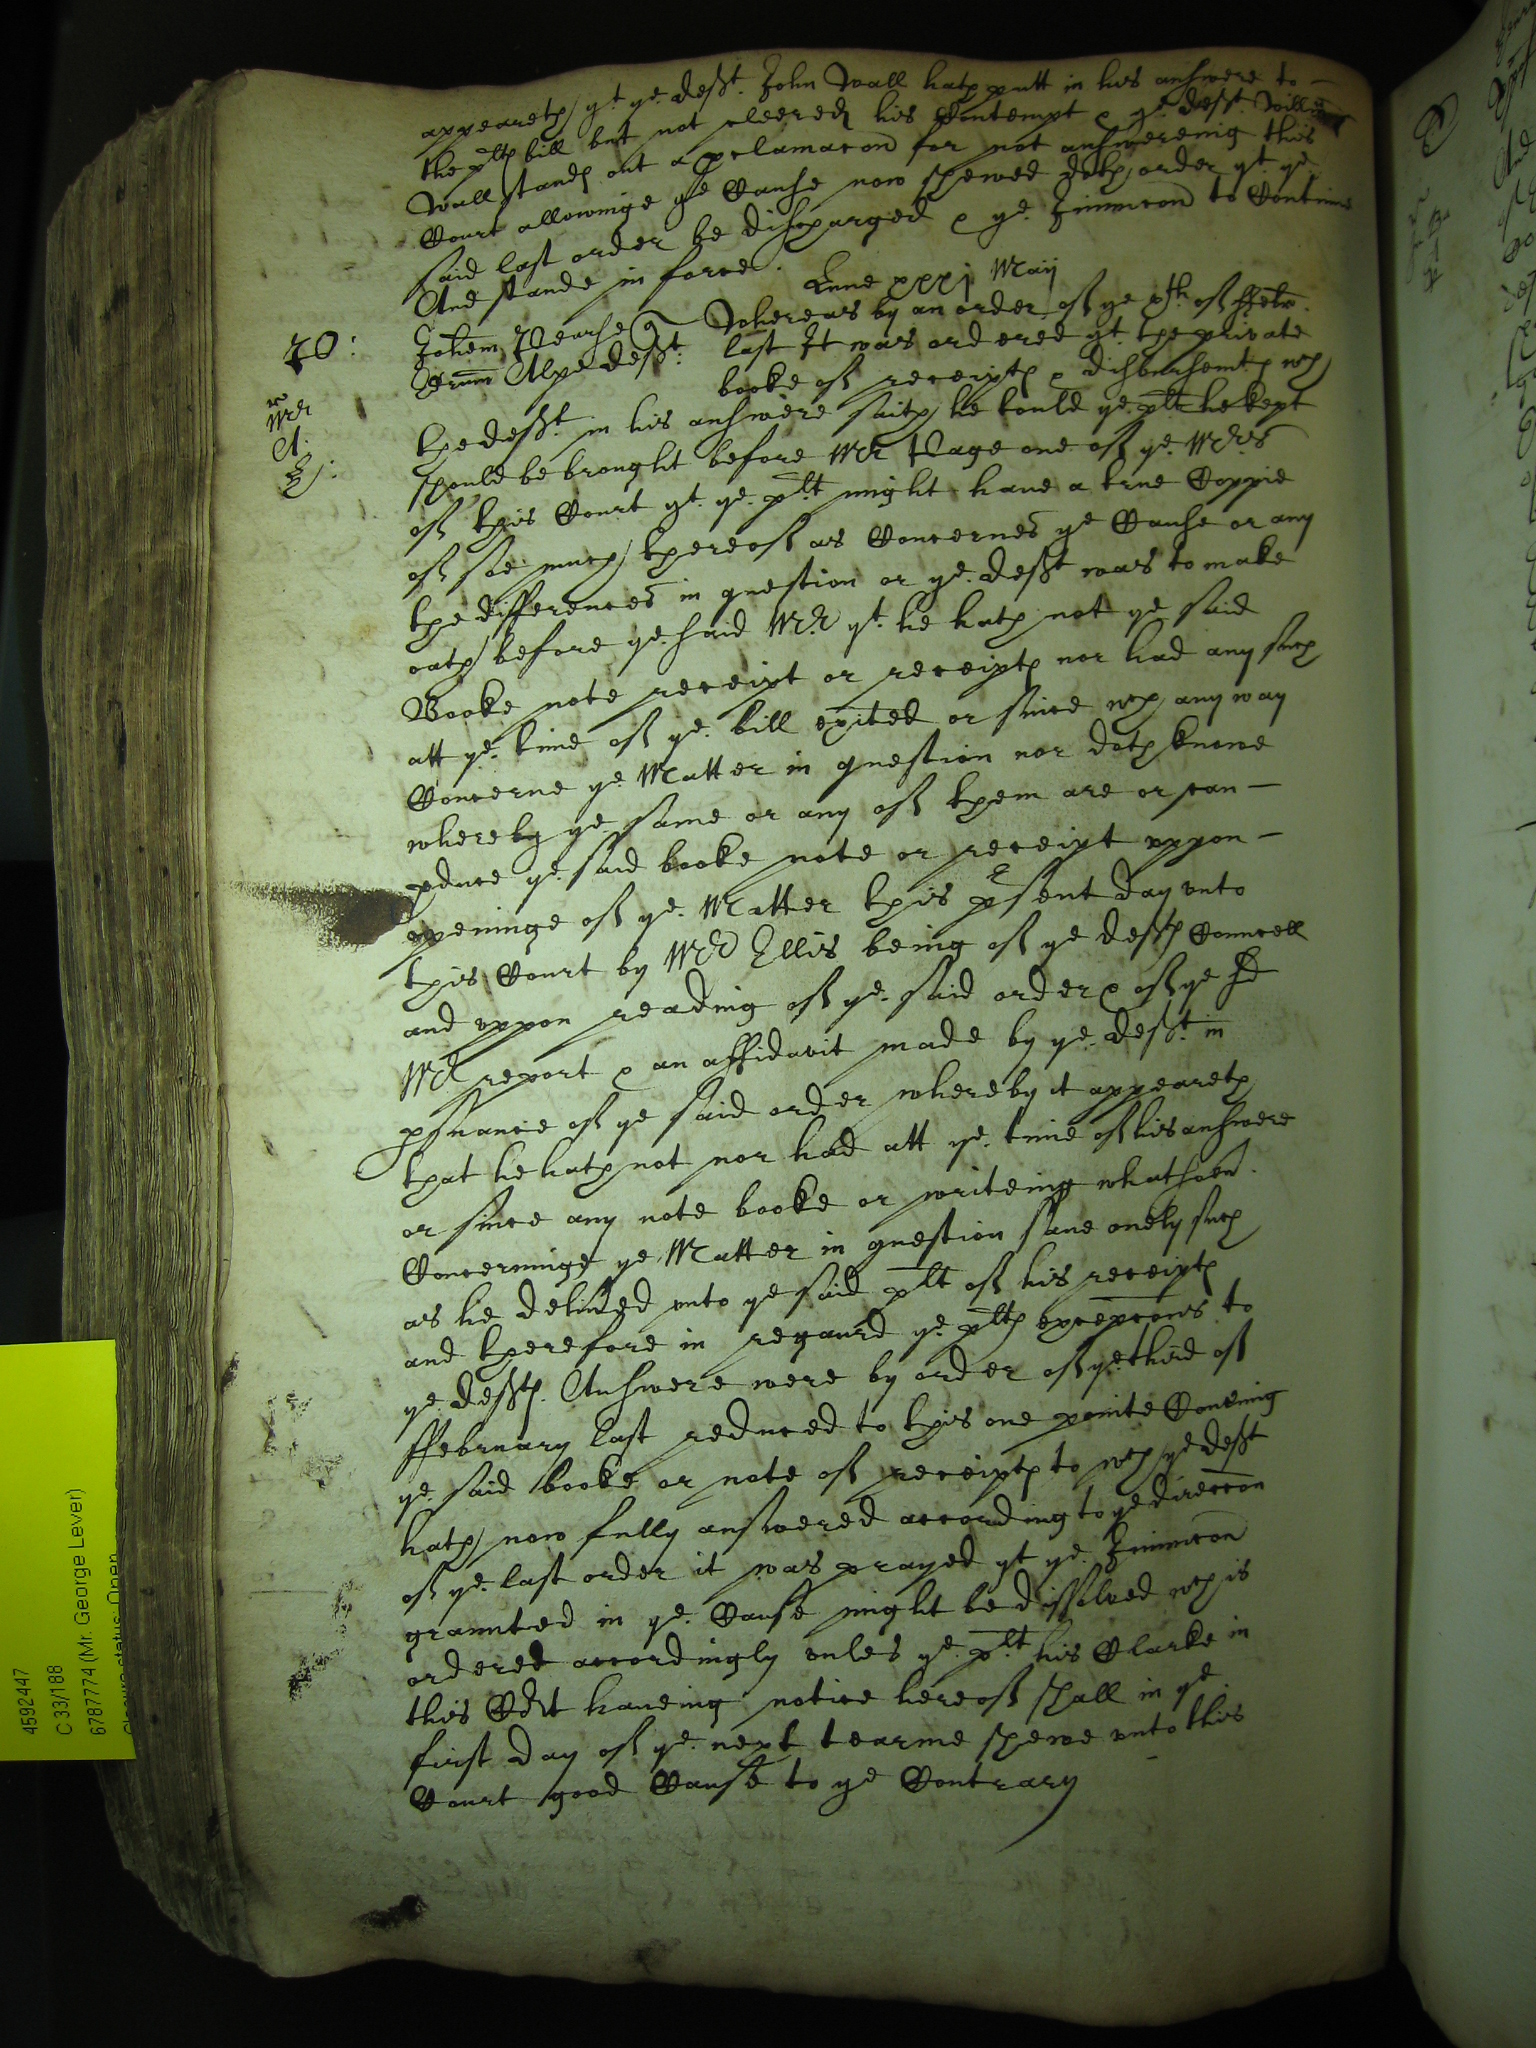 appeareth yt ye. deft. John Wall hath putt in his answere to
the plts bill but not cleered his Contempt & ye. deft. Willm
Wall stands out a pclamacon for not answereing this
Court allowinge ye Cause now shewed doth order yt ye
said last order be discharged & ye. Iniunccon to Continue
And stande in force.
Lune xxxj Maij
70:
Johem Pearse Whereas by an order of ye xth of ffebr.
Jerum Alpe deft: last It was ordered yt. the private
booke of receipts & disbursemts wch
Mr
A:
the deft. in his answere saith he tould ye. plt he kept
should be brought before Mr Page one of ye. Mrs
of this Court yt. ye. plt might have a true Coppie
of soe much thereof as Concernes ye Cause or any
the differences in question or ye. deft was to make
oath before ye. said Mr. yt. he hath not ye said
Booke note receipt or receipts nor had any such
att ye. time of ye. bill exited or since wch any way
Concerne ye Matter in question nor doth knowe
whereby ye. same or any of them are or can
pduce ye. said booke note or receipt uppon
openinge of ye. Matter this psent day unto
this Court by Mr Ellis being of ye defts Councell
and uppon reading of ye. said order & of ye sd
Mr report & an affidavit made by ye. deft. in
psuance of ye said order whereby it appeareth
that he hath not nor had att ye. time of his answere
or since any note booke or writeing whatsoevr.
Concerninge ye Matter in question save onely such
as he delivred unto ye said plt of his receipts
and therefore in regaurd ye. plts excepcons to
ye. defts. Answere were by order of ye third of
ffebruary last reduced to this one pointe Concning
ye. said booke or note of receipts to wch ye deft
hath now fully answered according to ye direccon
of ye. last order it was prayed yt ye. Iniunccon
graunted in ye. Cause might be dissolved wch is
ordered accordingly unles ye. plt his Clarke in
this Cort haveing notice hereof shall in ye
first day of ye. next tearme shewe unto this
Court good Cause to ye Contrary
4592447
C 33/188
6787774 (Mr. George Lever)
Closure status: Open